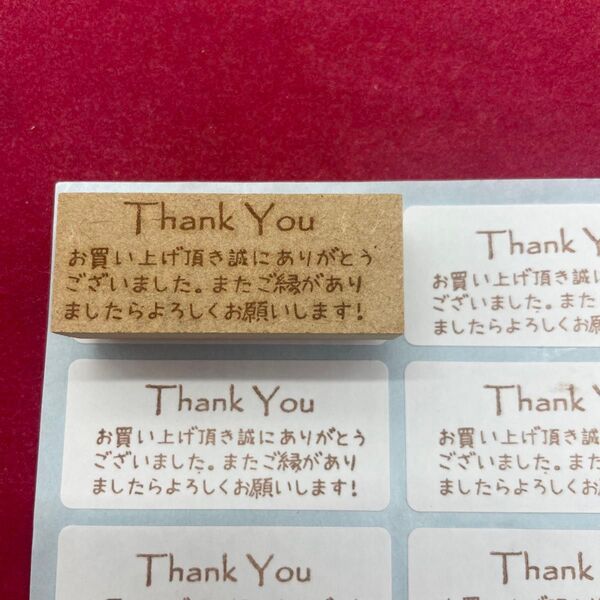 Thank You
お買い上げ頂き誠にありがとう
ございました。またご縁があり
ましたらよろしくお願いします!
Thank Y
お買い上げ頂き誠に
ございました。また
ましたらよろしくお願
Thank You
お買い上げ頂き誠にありがとう
ございました。またご縁があり
ましたらよろしくお願いします!
Thank
お買い上げ頂き誠
ございました。また
ましたらよろしくお
Thank You
Thank